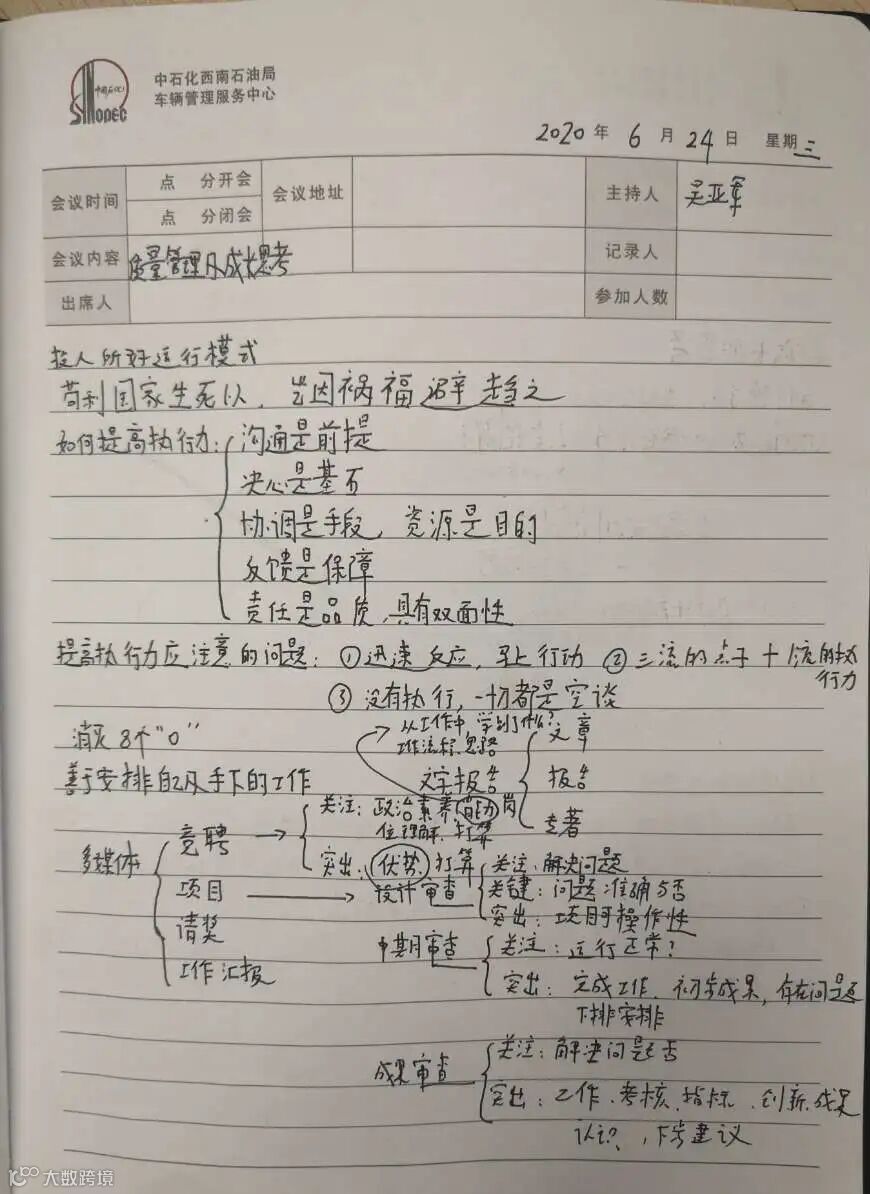 中国石化
SINOPEC
中石化西南石油局
车辆管理服务中心
2020年 6月 24日 星期三
会议时间 点 分开会 会议地址 主持人 吴亚军
点 分闭会
会议内容 质量管理及成长思考 记录人
出席人 参加人数
投人所好运行模式
苟利国家生死以,岂因祸福避趋之
如何提高执行力: 沟通是前提
决心是基石
协调是手段,资源是目的
反馈是保障
责任是品质,具有双面性
提高执行力应注意的问题: ①迅速反应,马上行动 ②三流的点子+1流的执行力
③没有执行,一切都是空谈
消灭8个“0”
从工作中,学到了什么?
工作流程、思路
善于安排自己及手下的工作
文字报告 文章
报告
专著
多媒体 竞聘 关注:政治素养、能力、岗位理解、打算
突出:优势、打算
项目 设计审查 关注:解决问题
关键:问题准确与否
突出:项目可操作性
请奖
工作汇报
中期审查 关注:运行正常?
突出:完成工作、初步成果,存在问题
下排安排
成果审查 关注:解决问题否
突出:工作、考核、指标、创新、成果
认识?,下步建议
大数跨境